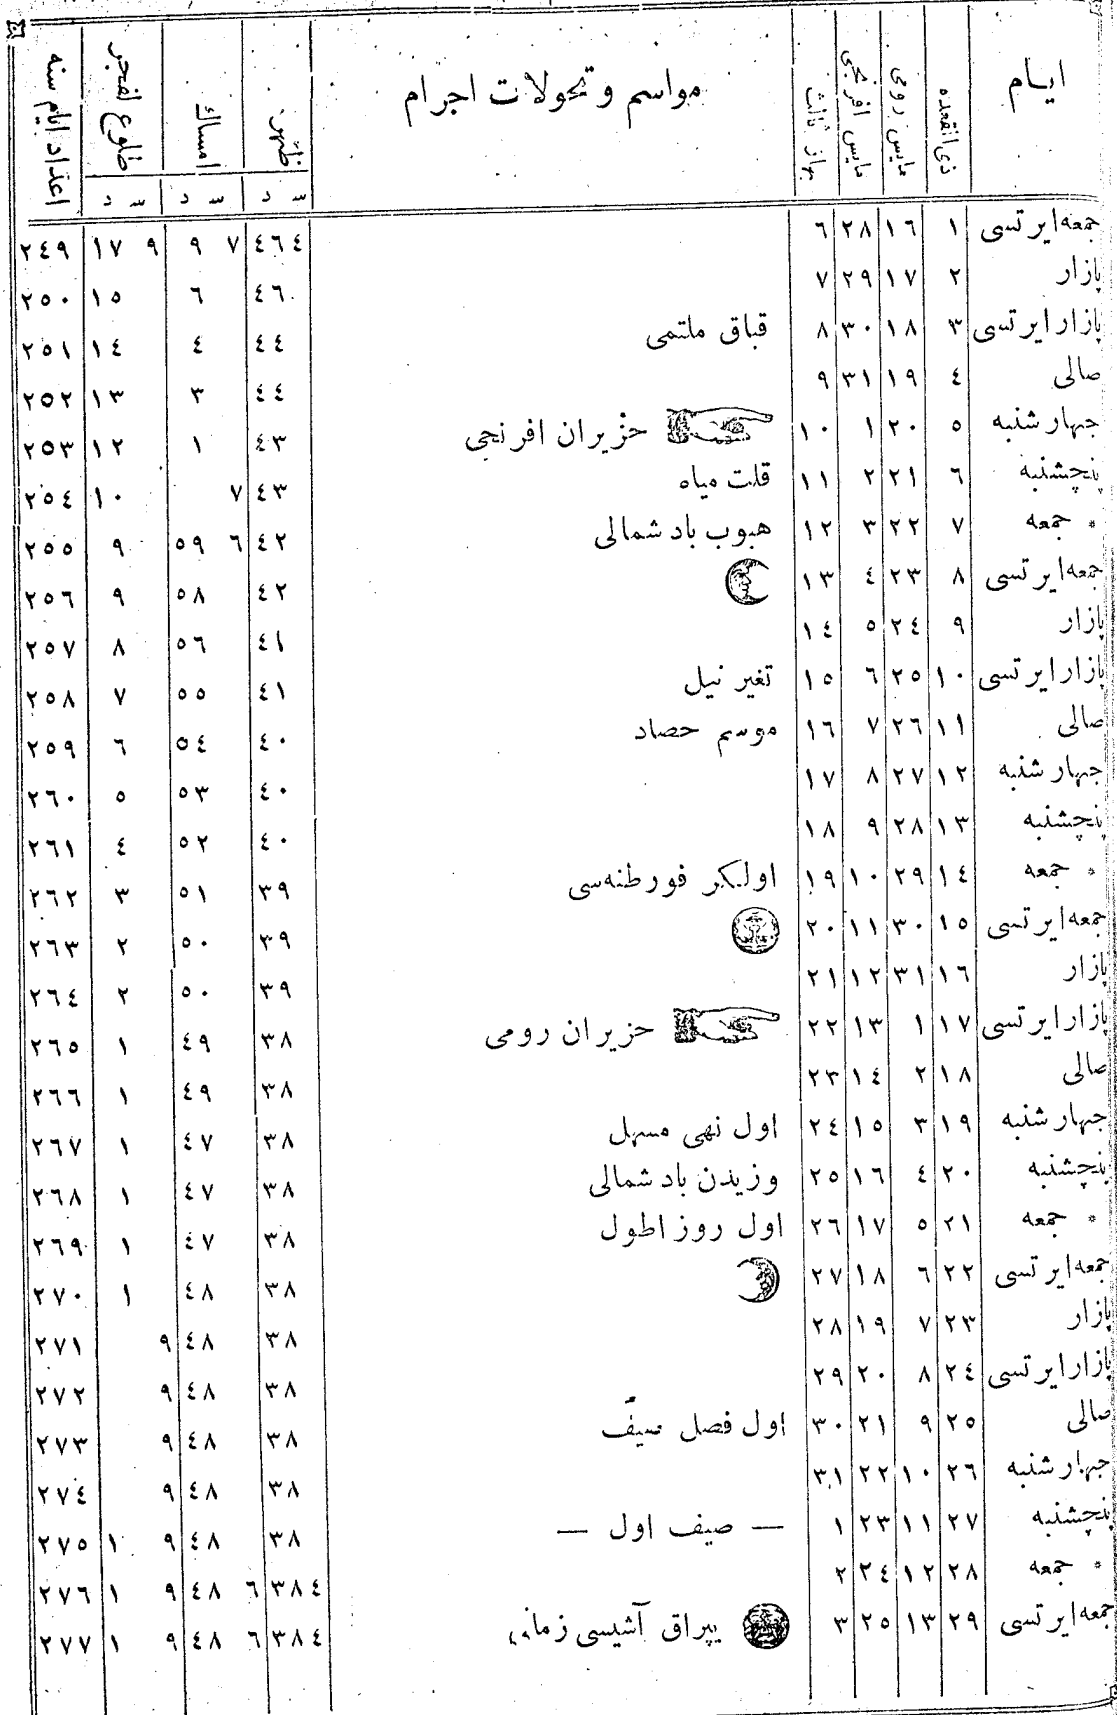 ایام ذی القعده مایس رومی مایس افرنجی بهار ثالث مواسم و تحولات اجرام ظهر امساك طلوع الفجر اعداد ایام سنه
س د س د س د
جمعه ایرتسی ١ ١٦ ٢٨ ٦ ٤ ٤٦ ٧ ٩ ٩ ١٧ ٢٤٩
پازار ٢ ١٧ ٢٩ ٧ ٤٦ ٦ ١٥ ٢٥٠
پازار ایرتسی ٣ ١٨ ٣٠ ٨ قباق ملتمی ٤٤ ٤ ١٤ ٢٥١
صالی ٤ ١٩ ٣١ ٩ ٤٤ ٣ ١٣ ٢٥٢
جهارشنبه ٥ ٢٠ ١ ١٠ حزیران افرنجی ٤٣ ١ ١٢ ٢٥٣
پنچشنبه ٦ ٢١ ٢ ١١ قلت میاه ٤٣ ٧ ١٠ ٢٥٤
* جمعه ٧ ٢٢ ٣ ١٢ هبوب باد شمالی ٤٢ ٦ ٥٩ ٩ ٢٥٥
جمعه ایرتسی ٨ ٢٣ ٤ ١٣ ٤٢ ٥٨ ٩ ٢٥٦
پازار ٩ ٢٤ ٥ ١٤ ٤١ ٥٦ ٨ ٢٥٧
پازار ایرتسی ١٠ ٢٥ ٦ ١٥ تغیر نیل ٤١ ٥٥ ٧ ٢٥٨
صالی ١١ ٢٦ ٧ ١٦ موسم حصاد ٤٠ ٥٤ ٦ ٢٥٩
جهارشنبه ١٢ ٢٧ ٨ ١٧ ٤٠ ٥٣ ٥ ٢٦٠
پنچشنبه ١٣ ٢٨ ٩ ١٨ ٤٠ ٥٢ ٤ ٢٦١
* جمعه ١٤ ٢٩ ١٠ ١٩ اولکر فورطنه‌سی ٣٩ ٥١ ٣ ٢٦٢
جمعه ایرتسی ١٥ ٣٠ ١١ ٢٠ ٣٩ ٥٠ ٢ ٢٦٣
پازار ١٦ ٣١ ١٢ ٢١ ٣٩ ٥٠ ٢ ٢٦٤
پازار ایرتسی ١٧ ١ ١٣ ٢٢ حزیران رومی ٣٨ ٤٩ ١ ٢٦٥
صالی ١٨ ٢ ١٤ ٢٣ ٣٨ ٤٩ ١ ٢٦٦
جهارشنبه ١٩ ٣ ١٥ ٢٤ اول نهی مسهل ٣٨ ٤٧ ١ ٢٦٧
پنچشنبه ٢٠ ٤ ١٦ ٢٥ وزیدن باد شمالی ٣٨ ٤٧ ١ ٢٦٨
* جمعه ٢١ ٥ ١٧ ٢٦ اول روز اطول ٣٨ ٤٧ ١ ٢٦٩
جمعه ایرتسی ٢٢ ٦ ١٨ ٢٧ ٣٨ ٤٨ ١ ٢٧٠
پازار ٢٣ ٧ ١٩ ٢٨ ٣٨ ٤٨ ٩ ٢٧١
پازار ایرتسی ٢٤ ٨ ٢٠ ٢٩ ٣٨ ٤٨ ٩ ٢٧٢
صالی ٢٥ ٩ ٢١ ٣٠ اول فصل صیف ٣٨ ٤٨ ٩ ٢٧٣
جهارشنبه ٢٦ ١٠ ٢٢ ٣١ ٣٨ ٤٨ ٩ ٢٧٤
پنچشنبه ٢٧ ١١ ٢٣ ١ — صیف اول — ٣٨ ٤٨ ٩ ١ ٢٧٥
* جمعه ٢٨ ١٢ ٢٤ ٢ ٤ ٣٨ ٦ ٤٨ ٩ ١ ٢٧٦
جمعه ایرتسی ٢٩ ١٣ ٢٥ ٣ یپراق آشیسی زمانی ٤ ٣٨ ٦ ٤٨ ٩ ١ ٢٧٧